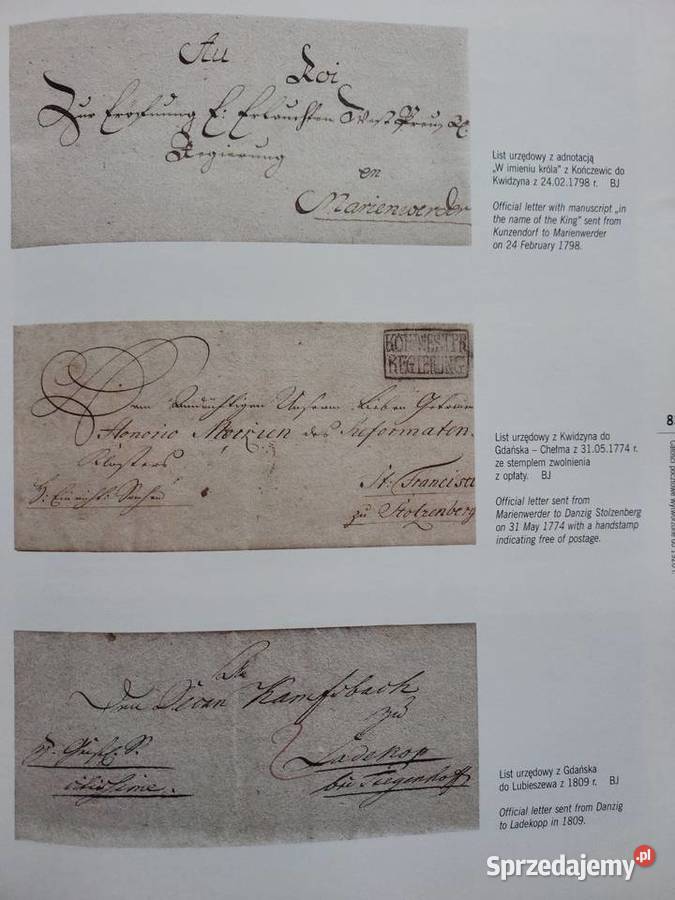 Au Roi
Zur Eröffnung E: Erlauchten West Preuß
Regierung
en
Marienwerder
List urzędowy z adnotacją
„W imieniu króla” z Kończewic do
Kwidzyna z 24.02.1798 r. BJ
Official letter with manuscript „in
the name of the King” sent from
Kunzendorf to Marienwerder
on 24 February 1798.
KÖN: WESTPR
REGIERUNG
Dem Andächtigen Unserm lieben Getreuen
Honorio des Reformaten
Klosters
St: Francisci
zu Stolzenberg
8
List urzędowy z Kwidzyna do
Gdańska – Chełma z 31.05.1774 r.
ze stemplem zwolnienia
z opłaty. BJ
Official letter sent from
Marienwerder to Danzig Stolzenberg
on 31 May 1774 with a handstamp
indicating free of postage.
Den Decan
zu
Ladekop
bei Tiegenhoff
List urzędowy z Gdańska
do Lubieszewa z 1809 r. BJ
Official letter sent from Danzig
to Ladekopp in 1809.
Sprzedajemy.pl